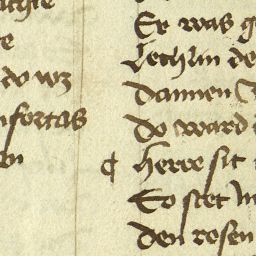 achte
e
do wz
nfortas
en
Er was g
lechlin de
dannen
do ward
herre sit
So stet
den rosen